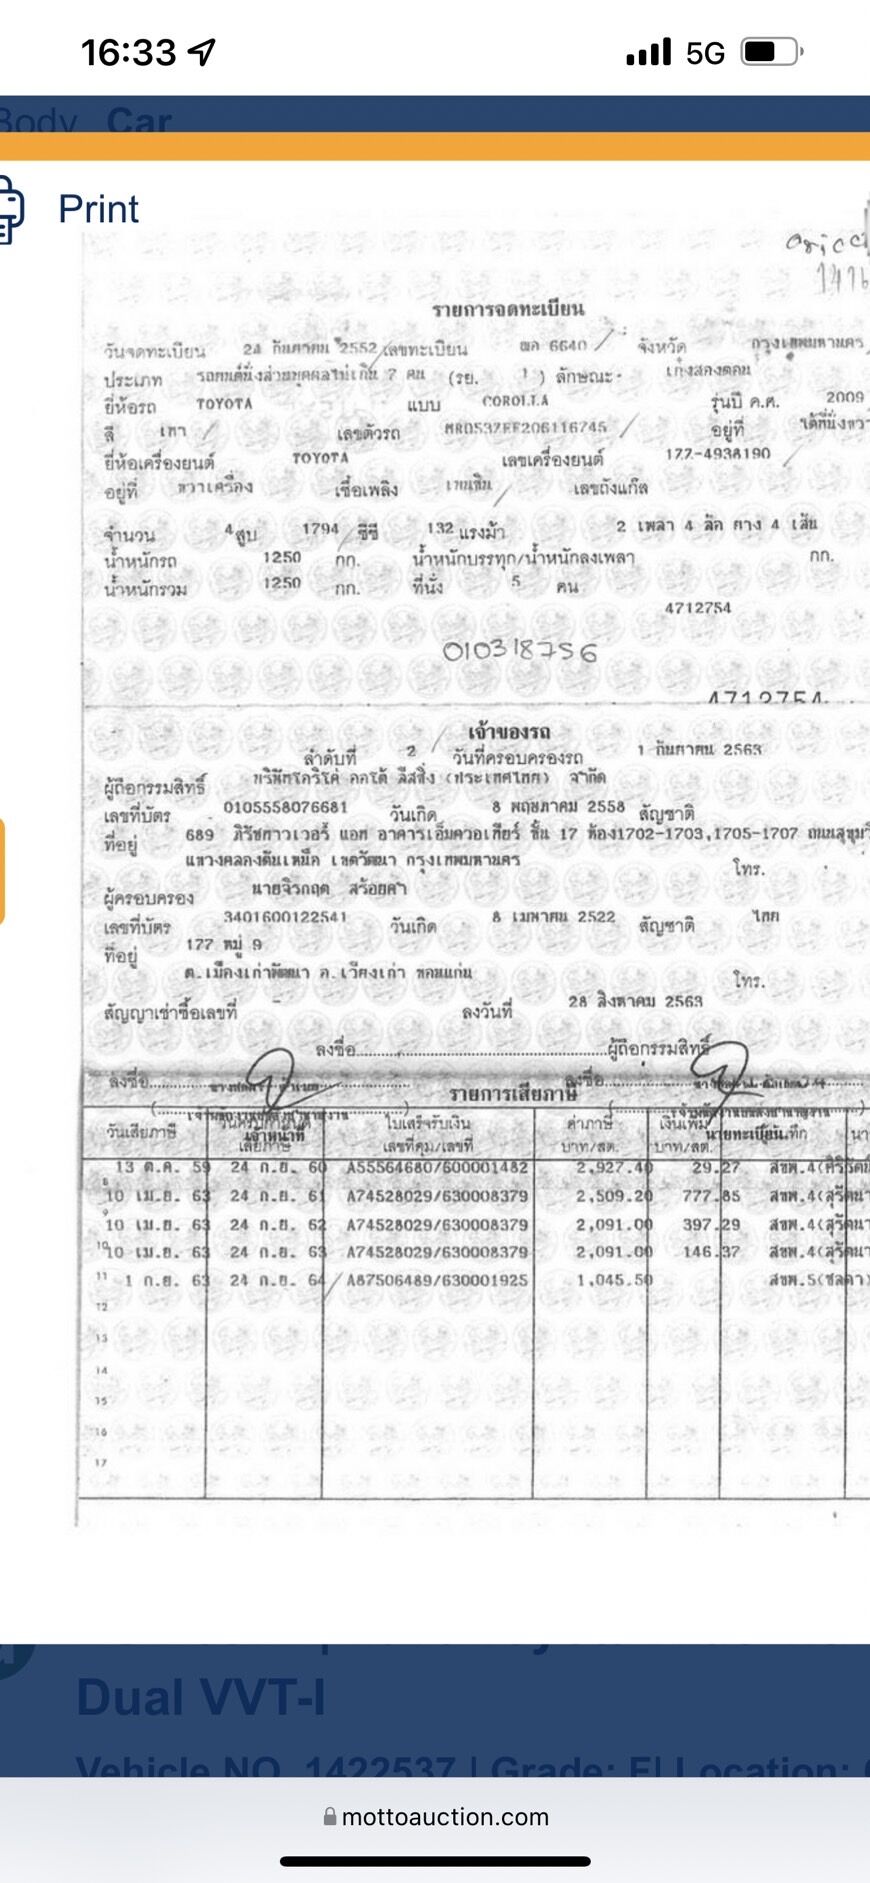 16:33
5G
Body Car
Print
รายการจดทะเบียน
วันจดทะเบียน 24 กันยายน 2552 เลขทะเบียน 6640 จังหวัด กรุงเทพมหานคร
ประเภท รถยนต์นั่งส่วนบุคคลไม่เกิน 7 คน (รย. 1 ) ลักษณะ เก๋งสองตอน
ยี่ห้อรถ TOYOTA แบบ COROLLA รุ่นปี ค.ศ. 2009
สี เทา เลขตัวรถ MR053ZEE206116745 อยู่ที่ ใต้ที่นั่งขวา
ยี่ห้อเครื่องยนต์ TOYOTA เลขเครื่องยนต์ 1ZZ-4938190
อยู่ที่ ขวาเครื่อง เชื้อเพลิง เบนซิน เลขถังแก๊ส
จำนวน 4 สูบ 1794 ซีซี 132 แรงม้า 2 เพลา 4 ล้อ ยาง 4 เส้น
น้ำหนักรถ 1250 กก. น้ำหนักบรรทุก/น้ำหนักลงเพลา กก.
น้ำหนักรวม 1250 กก. ที่นั่ง 5 คน
4712754
010318756
4712754
เจ้าของรถ
ลำดับที่ 2 วันที่ครอบครองรถ 1 กันยายน 2563
ผู้ถือกรรมสิทธิ์ บริษัทโตริโค่ ออโต้ ลีสซิ่ง (ประเทศไทย) จำกัด
เลขที่บัตร 0105558076681 วันเกิด 8 พฤษภาคม 2558 สัญชาติ
ที่อยู่ 689 ภิรัชทาวเวอร์ แอท อาคารเอ็มควอเทียร์ ชั้น 17 ห้อง1702-1703,1705-1707 ถนนสุขุมวิ
แขวงคลองตันเหนือ เขตวัฒนา กรุงเทพมหานคร โทร.
ผู้ครอบครอง นายจิรกฤต สร้อยคำ
เลขที่บัตร 3401600122541 วันเกิด 8 เมษายน 2522 สัญชาติ ไทย
ที่อยู่ 177 หมู่ 9
ต.เมืองเก่าพัฒนา อ.เวียงเก่า ขอนแก่น โทร.
สัญญาเช่าซื้อเลขที่ - ลงวันที่ 28 สิงหาคม 2563
ลงชื่อ ผู้ถือกรรมสิทธิ์
ลงชื่อ รายการเสียภาษี ลงชื่อ
วันเสียภาษี เจ้าหน้าที่ ใบเสร็จรับเงิน ค่าภาษี เงินเพิ่ม นายทะเบียน
เลขที่คุม/เลขที่ บาท/สต. บาท/สต.
13 ต.ค. 59 24 ก.ย. 60 A55564680/600001482 2,927.40 29.27 สขพ.4(ศิริรัตน์
10 เม.ย. 63 24 ก.ย. 61 A74528029/630008379 2,509.20 777.85 สขพ.4(สุรัตนา
10 เม.ย. 63 24 ก.ย. 62 A74528029/630008379 2,091.00 397.29 สขพ.4(สุรัตนา
10 10 เม.ย. 63 24 ก.ย. 63 A74528029/630008379 2,091.00 146.37 สขพ.4(สุรัตนา
11 1 ก.ย. 63 24 ก.ย. 64 A87506489/630001925 1,045.50 สขพ.5(ชลดา)
12
13
14
15
16
17
Dual VVT-I
Vehicle NO. 1422537 | Grade: E| Location:
mottoauction.com